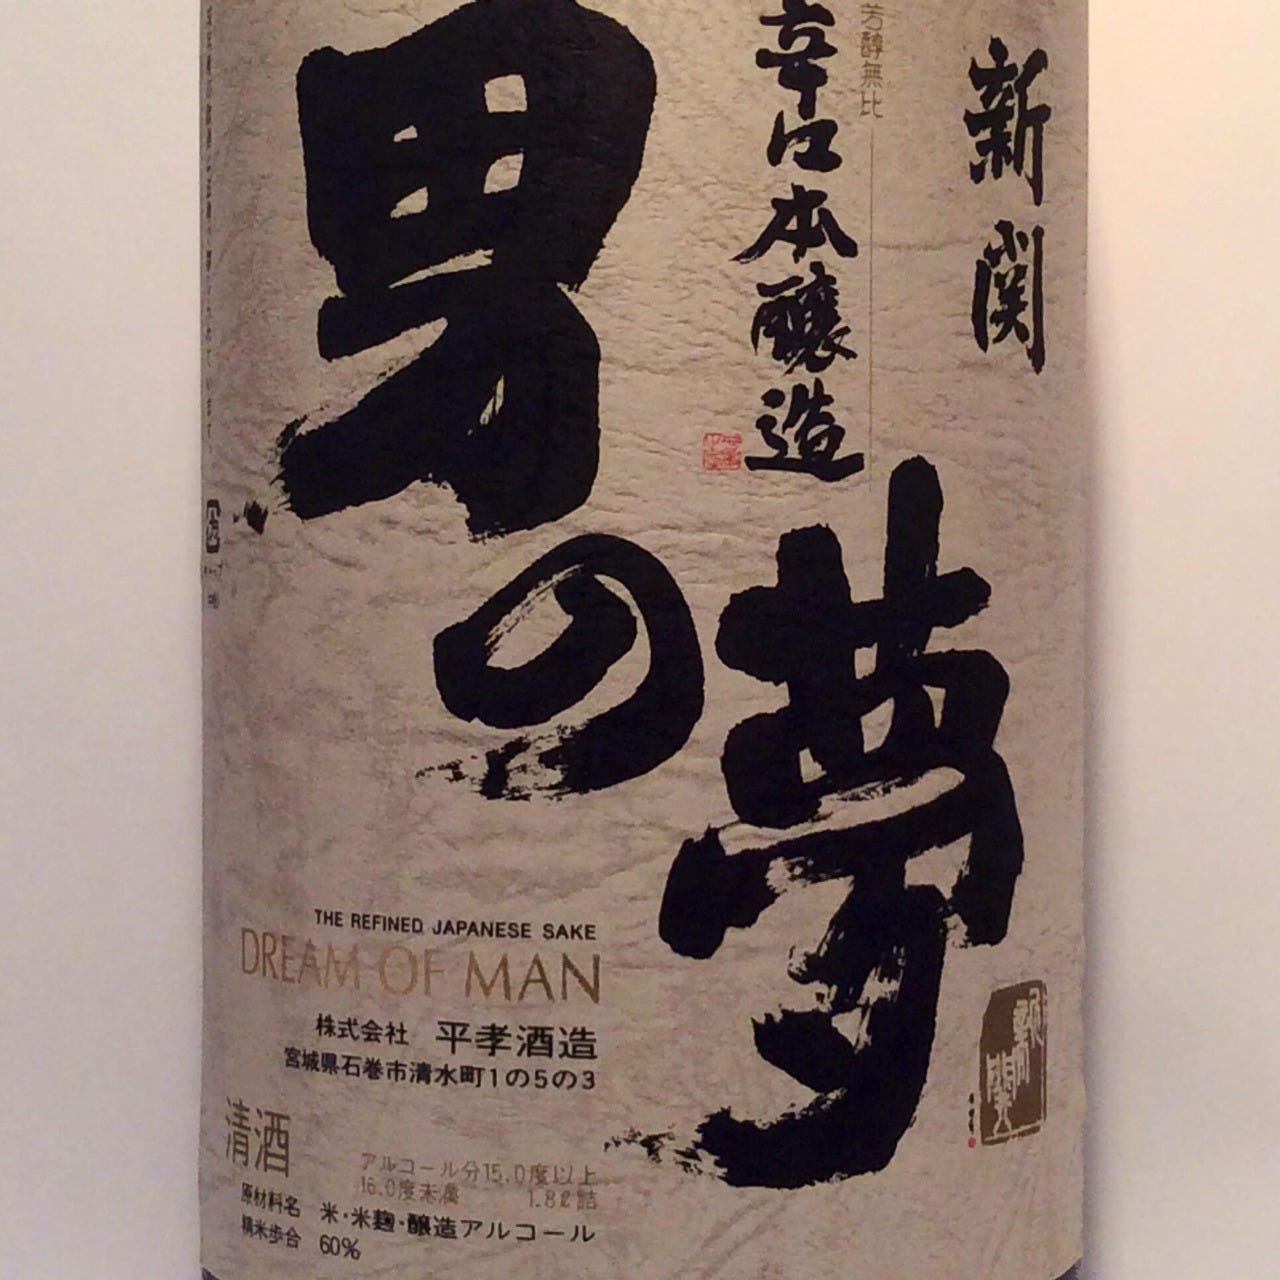 新関
芳醇無比
辛口本醸造
男の夢
THE REFINED JAPANESE SAKE
DREAM OF MAN
株式会社 平孝酒造
宮城県石巻市清水町1の5の3
清酒
アルコール分15.0度以上
16.0度未満 1.8ℓ詰
原材料名 米・米麹・醸造アルコール
精米歩合 60%